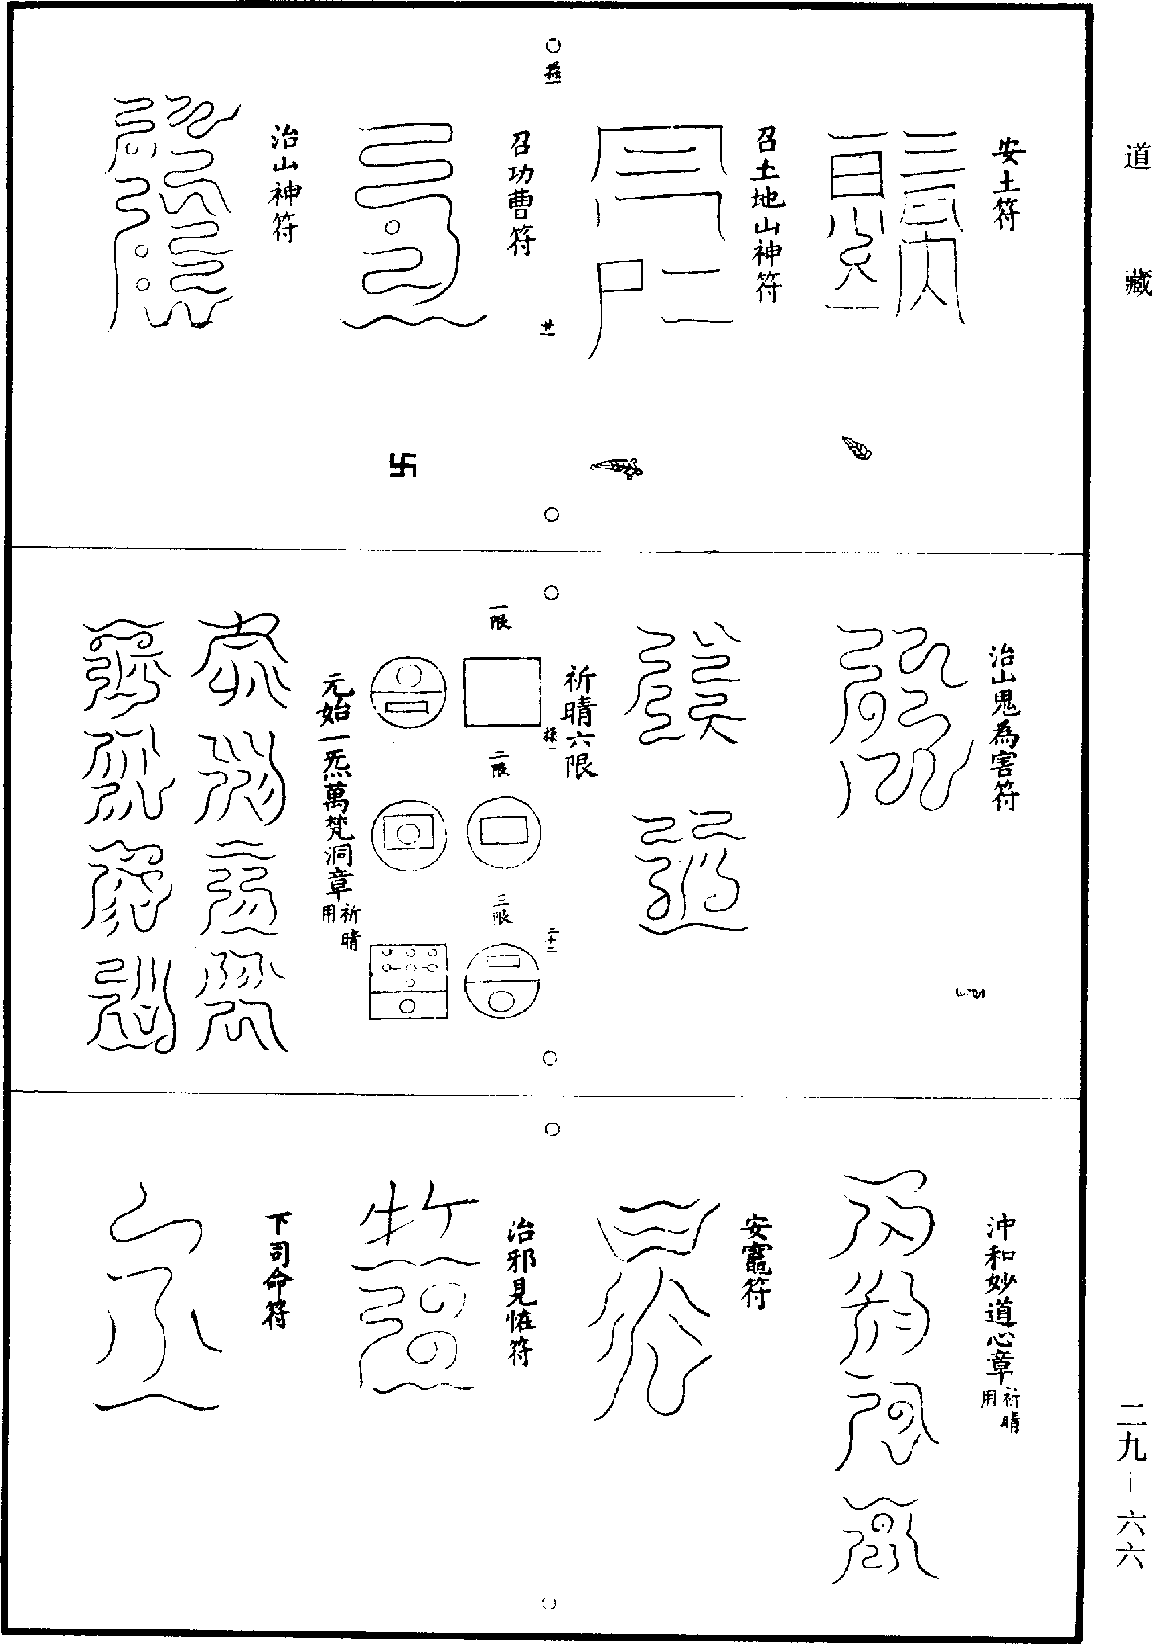 道藏
安土符
召土地山神符
召功曹符
治山神符
卍
治山鬼為害符
祈晴六限
一限
二限
三限
元始一炁萬梵洞章祈晴用
二十二
沖和妙道心章祈晴用
安竈符
治邪見怪符
下司命符
二九－六六